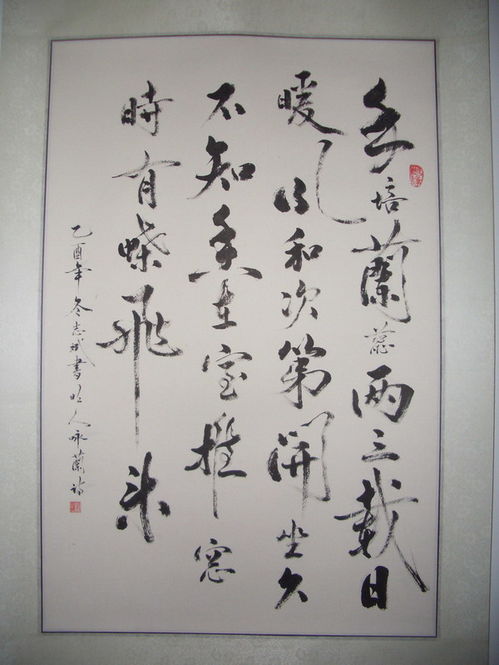 手培蘭蕊两三栽日
暖風和次第開坐久
不知香在室推窓
時有蝶飛来
乙酉年冬志書明人咏蘭詩